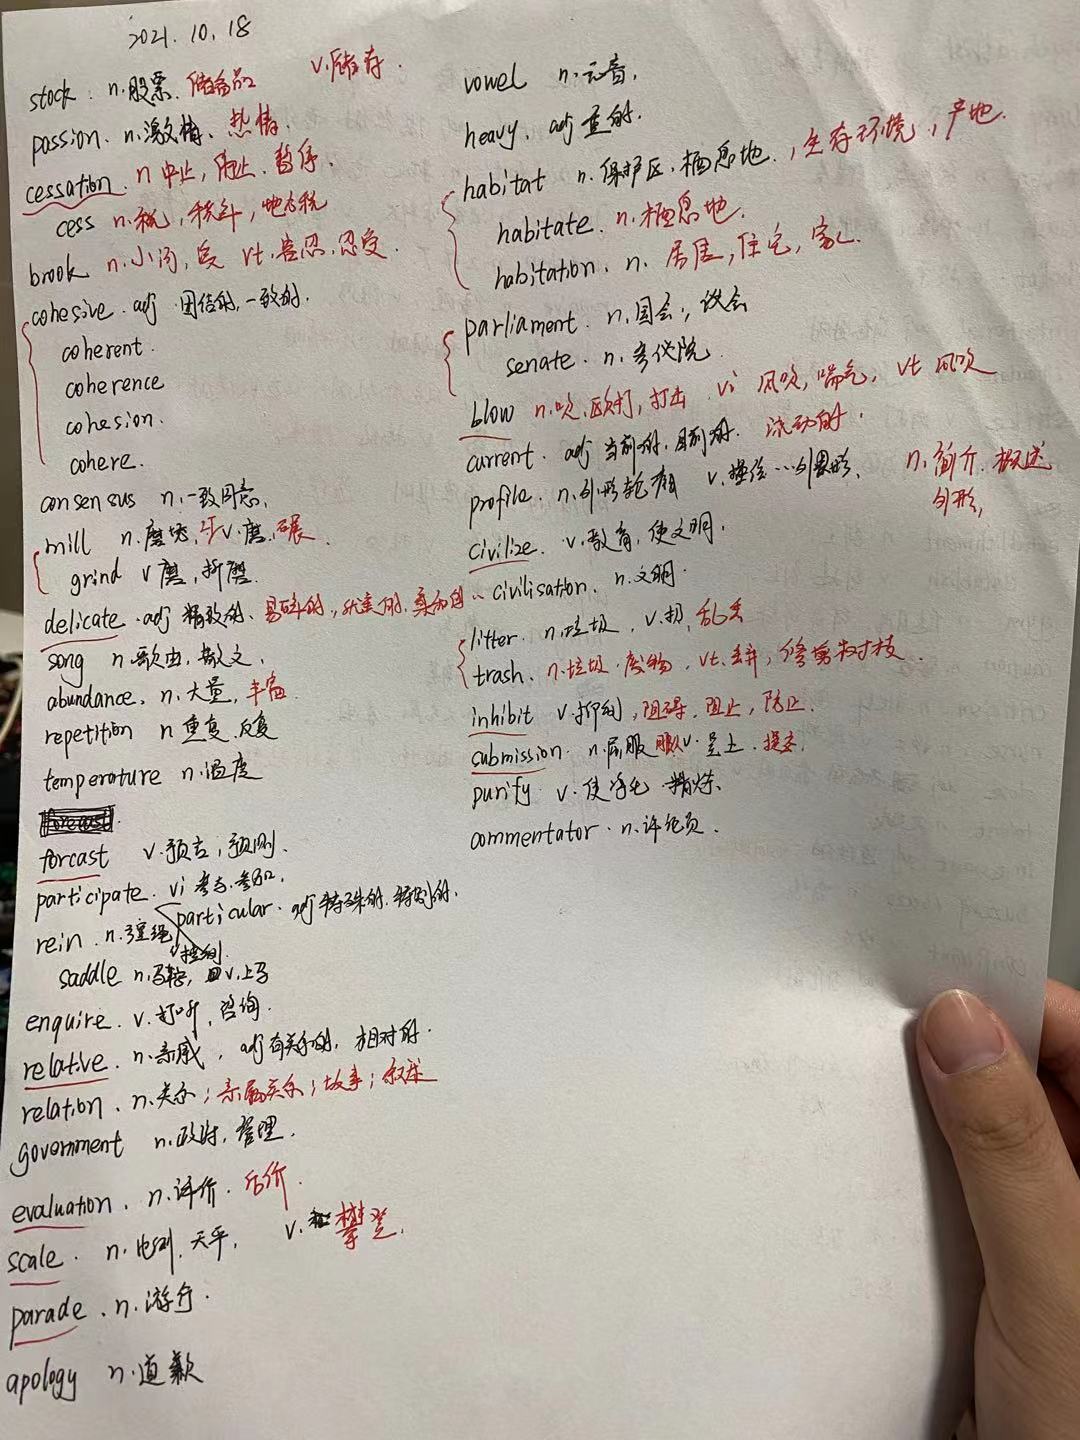 2021.10.18
stock. n.股票.储备品 v.储存.
passion. n.激情、热情.
cessation. n 中止,停止.暂停.
cess n.税,税斗,地方税
brook n.小河,溪 vt.容忍.忍受.
cohesive. adj 团结的,一致的.
coherent.
coherence
cohesion.
cohere.
consensus n.一致同意,
mill n.磨坊,厂v.磨.碾.
grind v磨,折磨.
delicate.adj 精致的、易碎的,
song n.歌曲,散文,
abundance. n.大量,丰富.
repetition n 重复.反复
temperature n.温度
forcast v.预言,预测.
participate. vi 参与.参加.
particular. adj特殊的.特别的.
rein. n.缰绳 v控制.
saddle n.马鞍, v.上马
enquire. v.打听,咨询.
relative. n.亲戚, adj有关系的,相对的.
relation. n.关系;亲属关系;故事;叙述
government n.政府,管理.
evaluation. n.评价. 估价.
scale. n.比例.天平, v. 攀登.
parade. n.游行.
apology n.道歉
vowel n.元音,
heavy. adj 重的.
habitat n.保护区.栖息地.,生存环境,产地.
habitate. n.栖息地.
habitation. n. 居住,住宅,家.
parliament. n.国会;议会
senate. n.参议院.
blow n.吹.殴打,打击 vi 风吹,喘气, vt 风吹
current. adj 当前的,目前的. 流动的.
profile. n.外形轮廓 v.描绘…外形, n.简介.概述
外形,
civilize. v.教育,使文明.
civilisation. n.文明.
litter. n.垃圾, v.扔,乱丢
trash. n.垃圾.废物, vt.丢弃,修剪树枝.
inhibit v.抑制,阻碍.阻止,防止.
submission. n.屈服 v.呈上.提交.
purify v.使净化.精炼.
commentator. n.评论员.